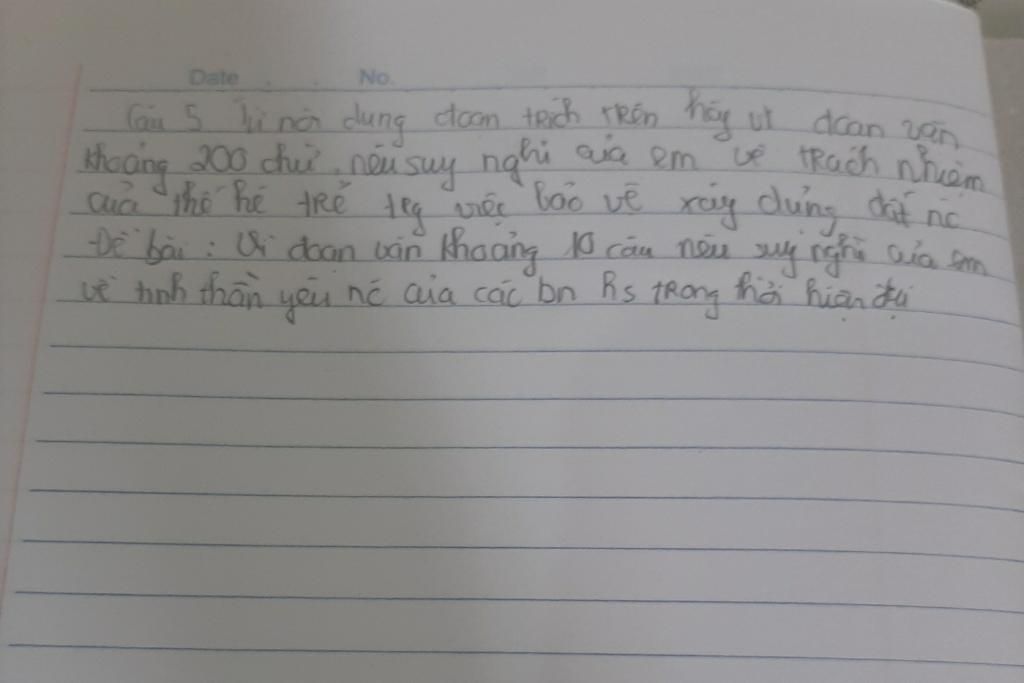 Date . . No.
Câu 5 Từ nội dung đoan trích trên hãy vt đoan văn
khoảng 200 chữ, nêu suy nghĩ của em về trách nhiệm
của thế hệ trẻ trg việc bảo vệ xây dựng đất nc
Đề bài : Vt đoan văn khoảng 10 câu nêu suy nghĩ của em
về tinh thần yêu nc của các bn hs trong thời hiện đại